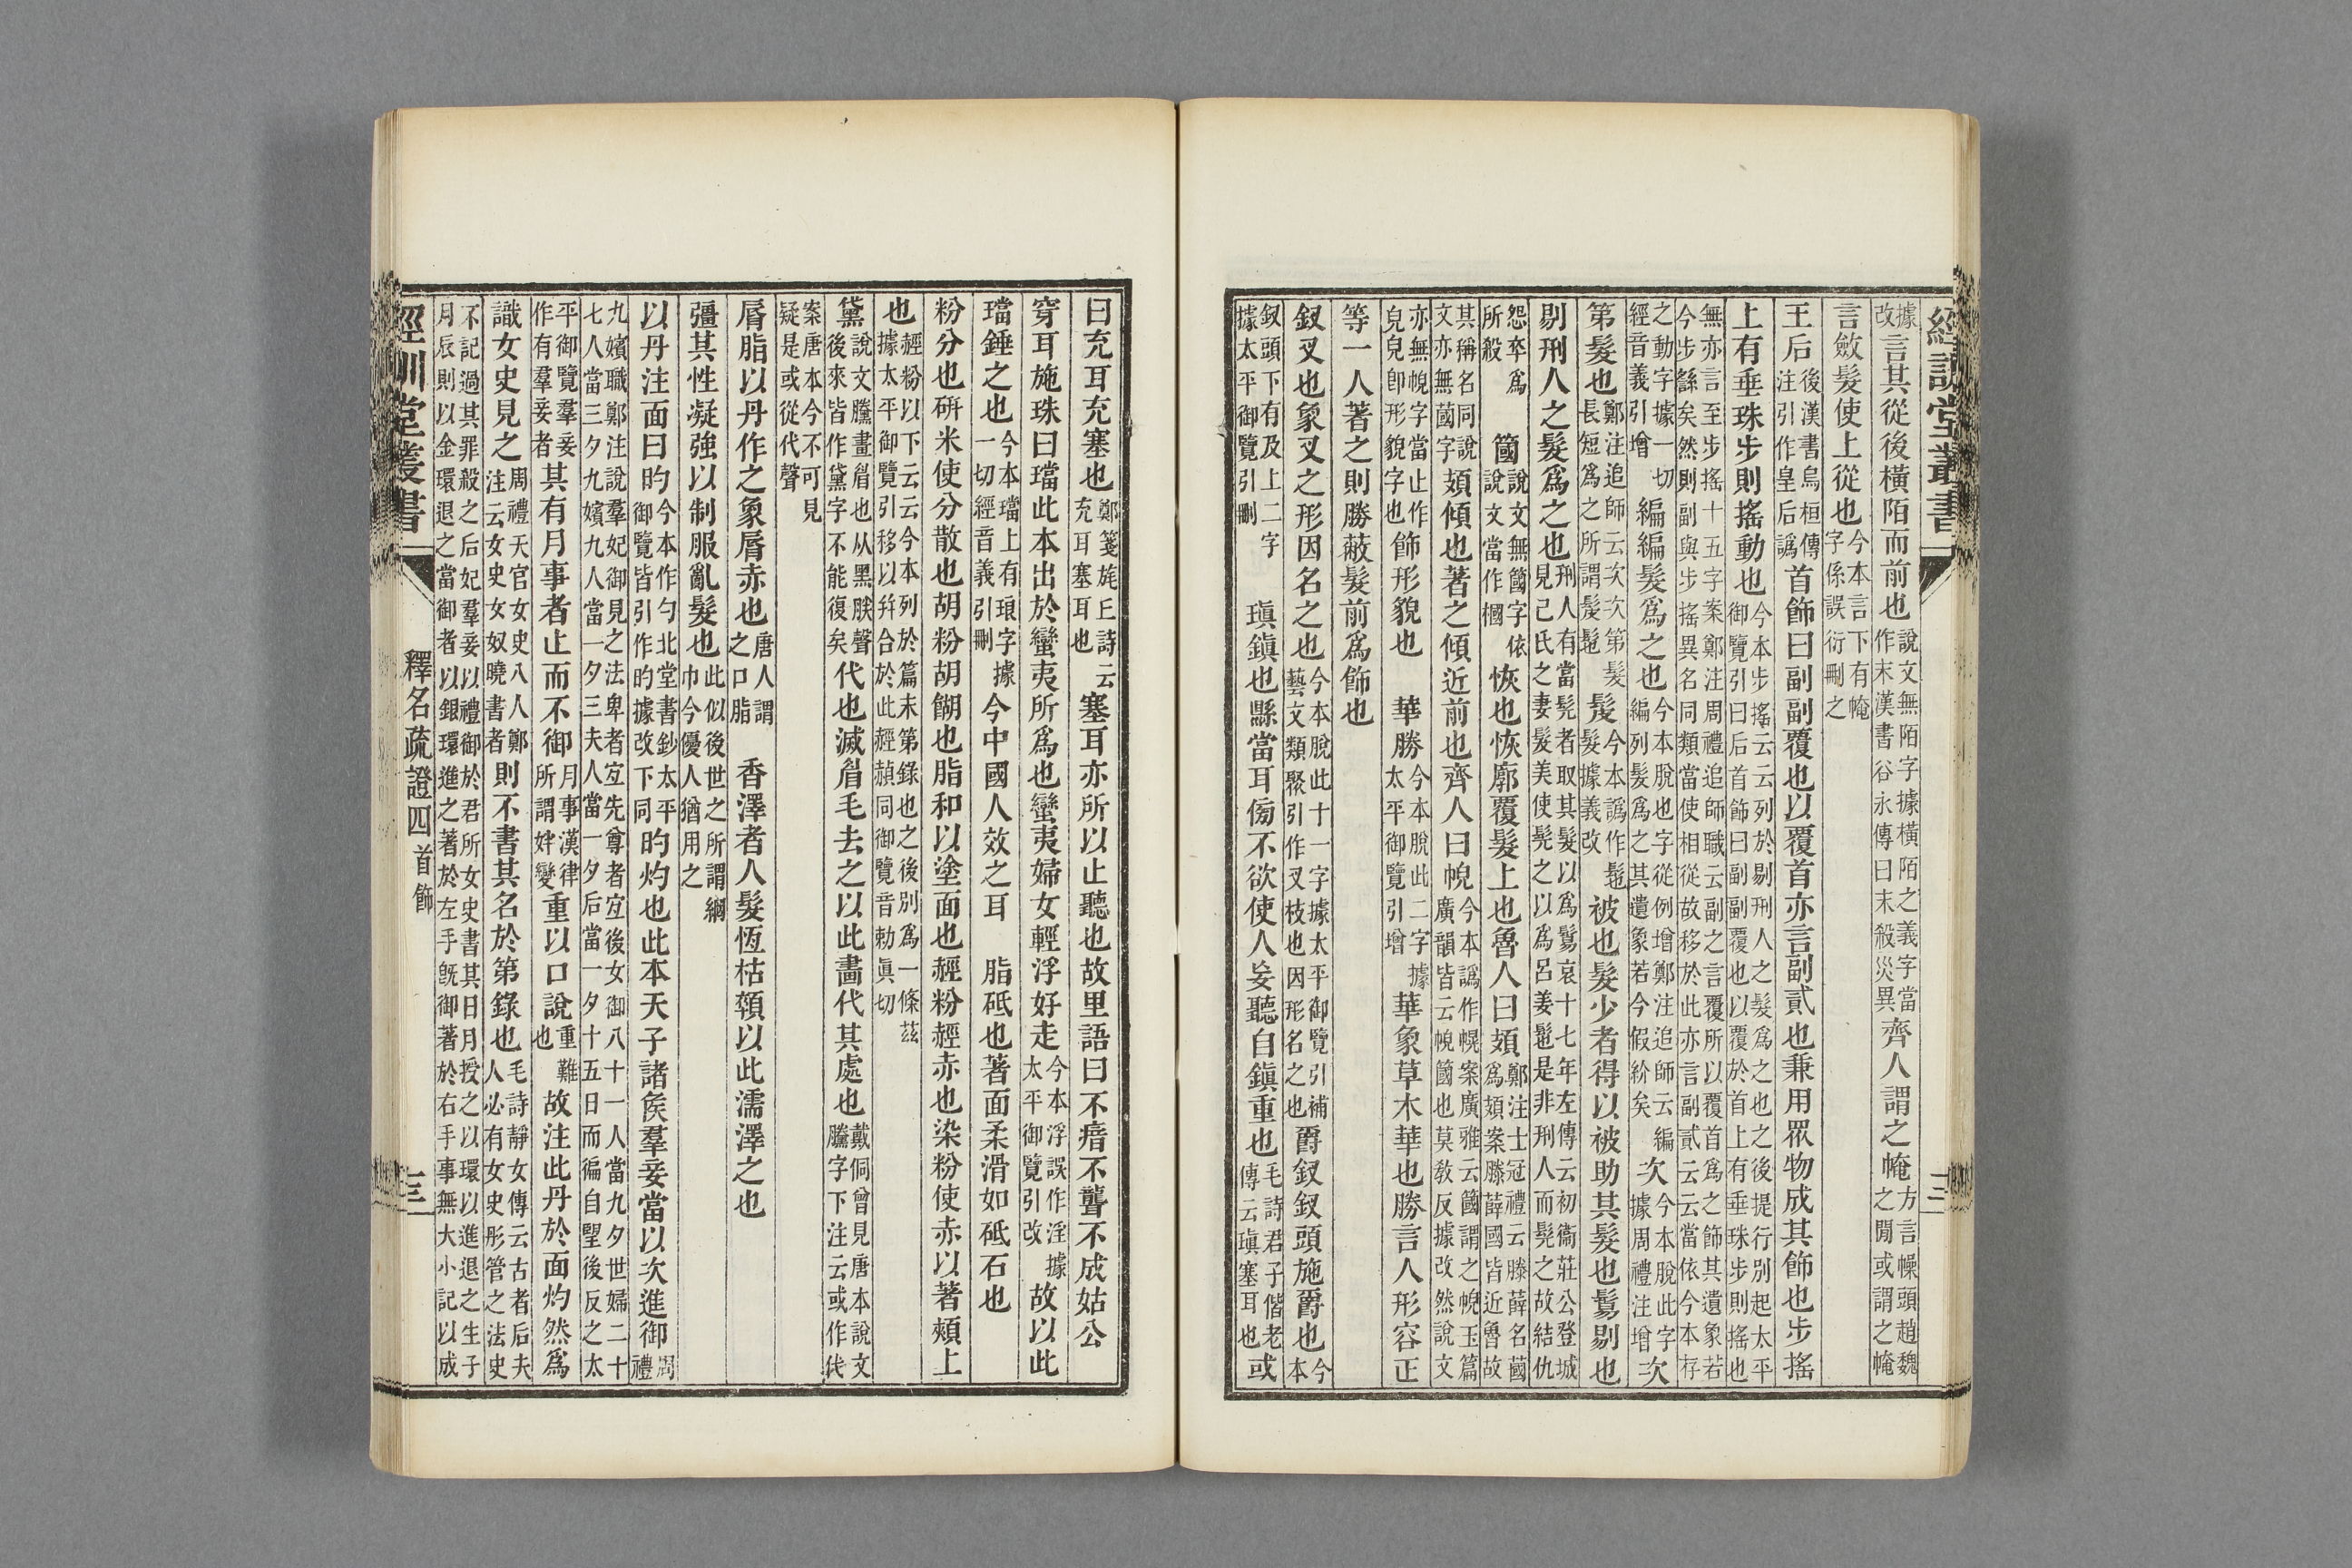 經訓堂叢書
據改言其從後橫陌而前也說文無陌字據橫陌之義字當作末漢書谷永傳曰末殺災異齊人謂之㡋方言幧頭趙魏之閒或謂之㡋
言斂髮使上從也今本言下有㡋字係誤衍刪之
王后後漢書烏桓傳注引作皇后譌首飾曰副副覆也以覆首亦言副貳也兼用眾物成其飾也步搖
上有垂珠步則搖動也今本步搖云云列於剔刑人之髮爲之也之後提行別起太平御覽引曰后首飾曰副副覆也以覆於首上有垂珠步則搖也
無亦言至步搖十五字案鄭注周禮追師職云副之言覆所以覆首爲之飾其遺象若今步繇矣然則副與步搖異名同類當使相從故移於此亦言副貳云云當依今本存
之動字據一切經音義引增編編髮爲之也今本脫也字從例增鄭注追師云編編列髮爲之其遺象若今假紒矣次今本脫此字據周禮注增次
第髮也鄭注追師云次次第髮長短爲之所謂髲髢髲今本譌作髢髮據義改被也髮少者得以被助其髮也鬄剔也
剔刑人之髮爲之也刑人有當髡者取其髮以爲鬄哀十七年左傳云初衞莊公登城見己氏之妻髮美使髡之以爲呂姜髢是非刑人而髡之故結仇
怨卒爲所殺簂說文無簂字依說文當作槶恢也恢廓覆髮上也魯人曰頍鄭注士冠禮云滕薛名蔮爲頍案滕薛國皆近魯故
其稱名同說文亦無蔮字頍傾也著之傾近前也齊人曰帨今本譌作幌案廣雅云簂謂之帨玉篇廣韻皆云帨簂也莫敎反據改然說文
亦無帨字當止作皃皃卽形貌字也飾形貌也　華勝今本脫此二字據太平御覽引增華象草木華也勝言人形容正
等一人著之則勝蔽髮前爲飾也
釵叉也象叉之形因名之也今本脫此十一字據太平御覽引補藝文類聚引作叉枝也因形名之也爵釵釵頭施爵也今本
釵頭下有及上二字據太平御覽引刪　瑱鎮也縣當耳㫄不欲使人妄聽自鎮重也毛詩君子偕老傳云瑱塞耳也或
曰充耳充塞也鄭箋旄丘詩云充耳塞耳也塞耳亦所以止聽也故里語曰不瘖不聾不成姑公
穿耳施珠曰璫此本出於蠻夷所爲也蠻夷婦女輕浮好走今本浮誤作淫據太平御覽引改故以此
璫錘之也今本璫上有琅字據一切經音義引刪今中國人效之耳　脂砥也著面柔滑如砥石也
粉分也硏米使分散也胡粉胡餬也脂和以塗面也䞓粉䞓赤也染粉使赤以著頰上
也䞓粉以下云云今本列於篇末第錄也之後別爲一條茲據太平御覽引移以幷合於此䞓赬同御覽音勅眞切
黛說文黱畫眉也从黑朕聲後來皆作黛字不能復矣代也滅眉毛去之以此畵代其處也戴侗曾見唐本說文黱字下注云或作代
案唐本今不可見疑是或從代聲
脣脂以丹作之象脣赤也唐人謂之口脂　香澤者人髮恆枯顇以此濡澤之也
彊其性凝強以制服亂髮也此似後世之所謂網巾今優人猶用之
以丹注面曰旳今本作勺北堂書鈔太平御覽皆引作旳據改下同旳灼也此本天子諸矦羣妾當以次進御周禮
九嬪職鄭注說羣妃御見之法卑者宐先尊者宐後女御八十一人當九夕世婦二十七人當三夕九嬪九人當一夕三夫人當一夕后當一夕十五日而徧自朢後反之太
平御覽羣妾作有羣妾者其有月事者止而不御月事漢律所謂姅變重以口說重難也故注此丹於面灼然爲
識女史見之周禮天官女史八人鄭注云女史女奴曉書者則不書其名於第錄也毛詩靜女傳云古者后夫人必有女史彤管之法史
不記過其罪殺之后妃羣妾以禮御於君所女史書其日月授之以環以進退之生子月辰則以金環退之當御者以銀環進之著於左手旣御著於右手事無大小記以成
經訓堂叢書　釋名疏證四　首飾